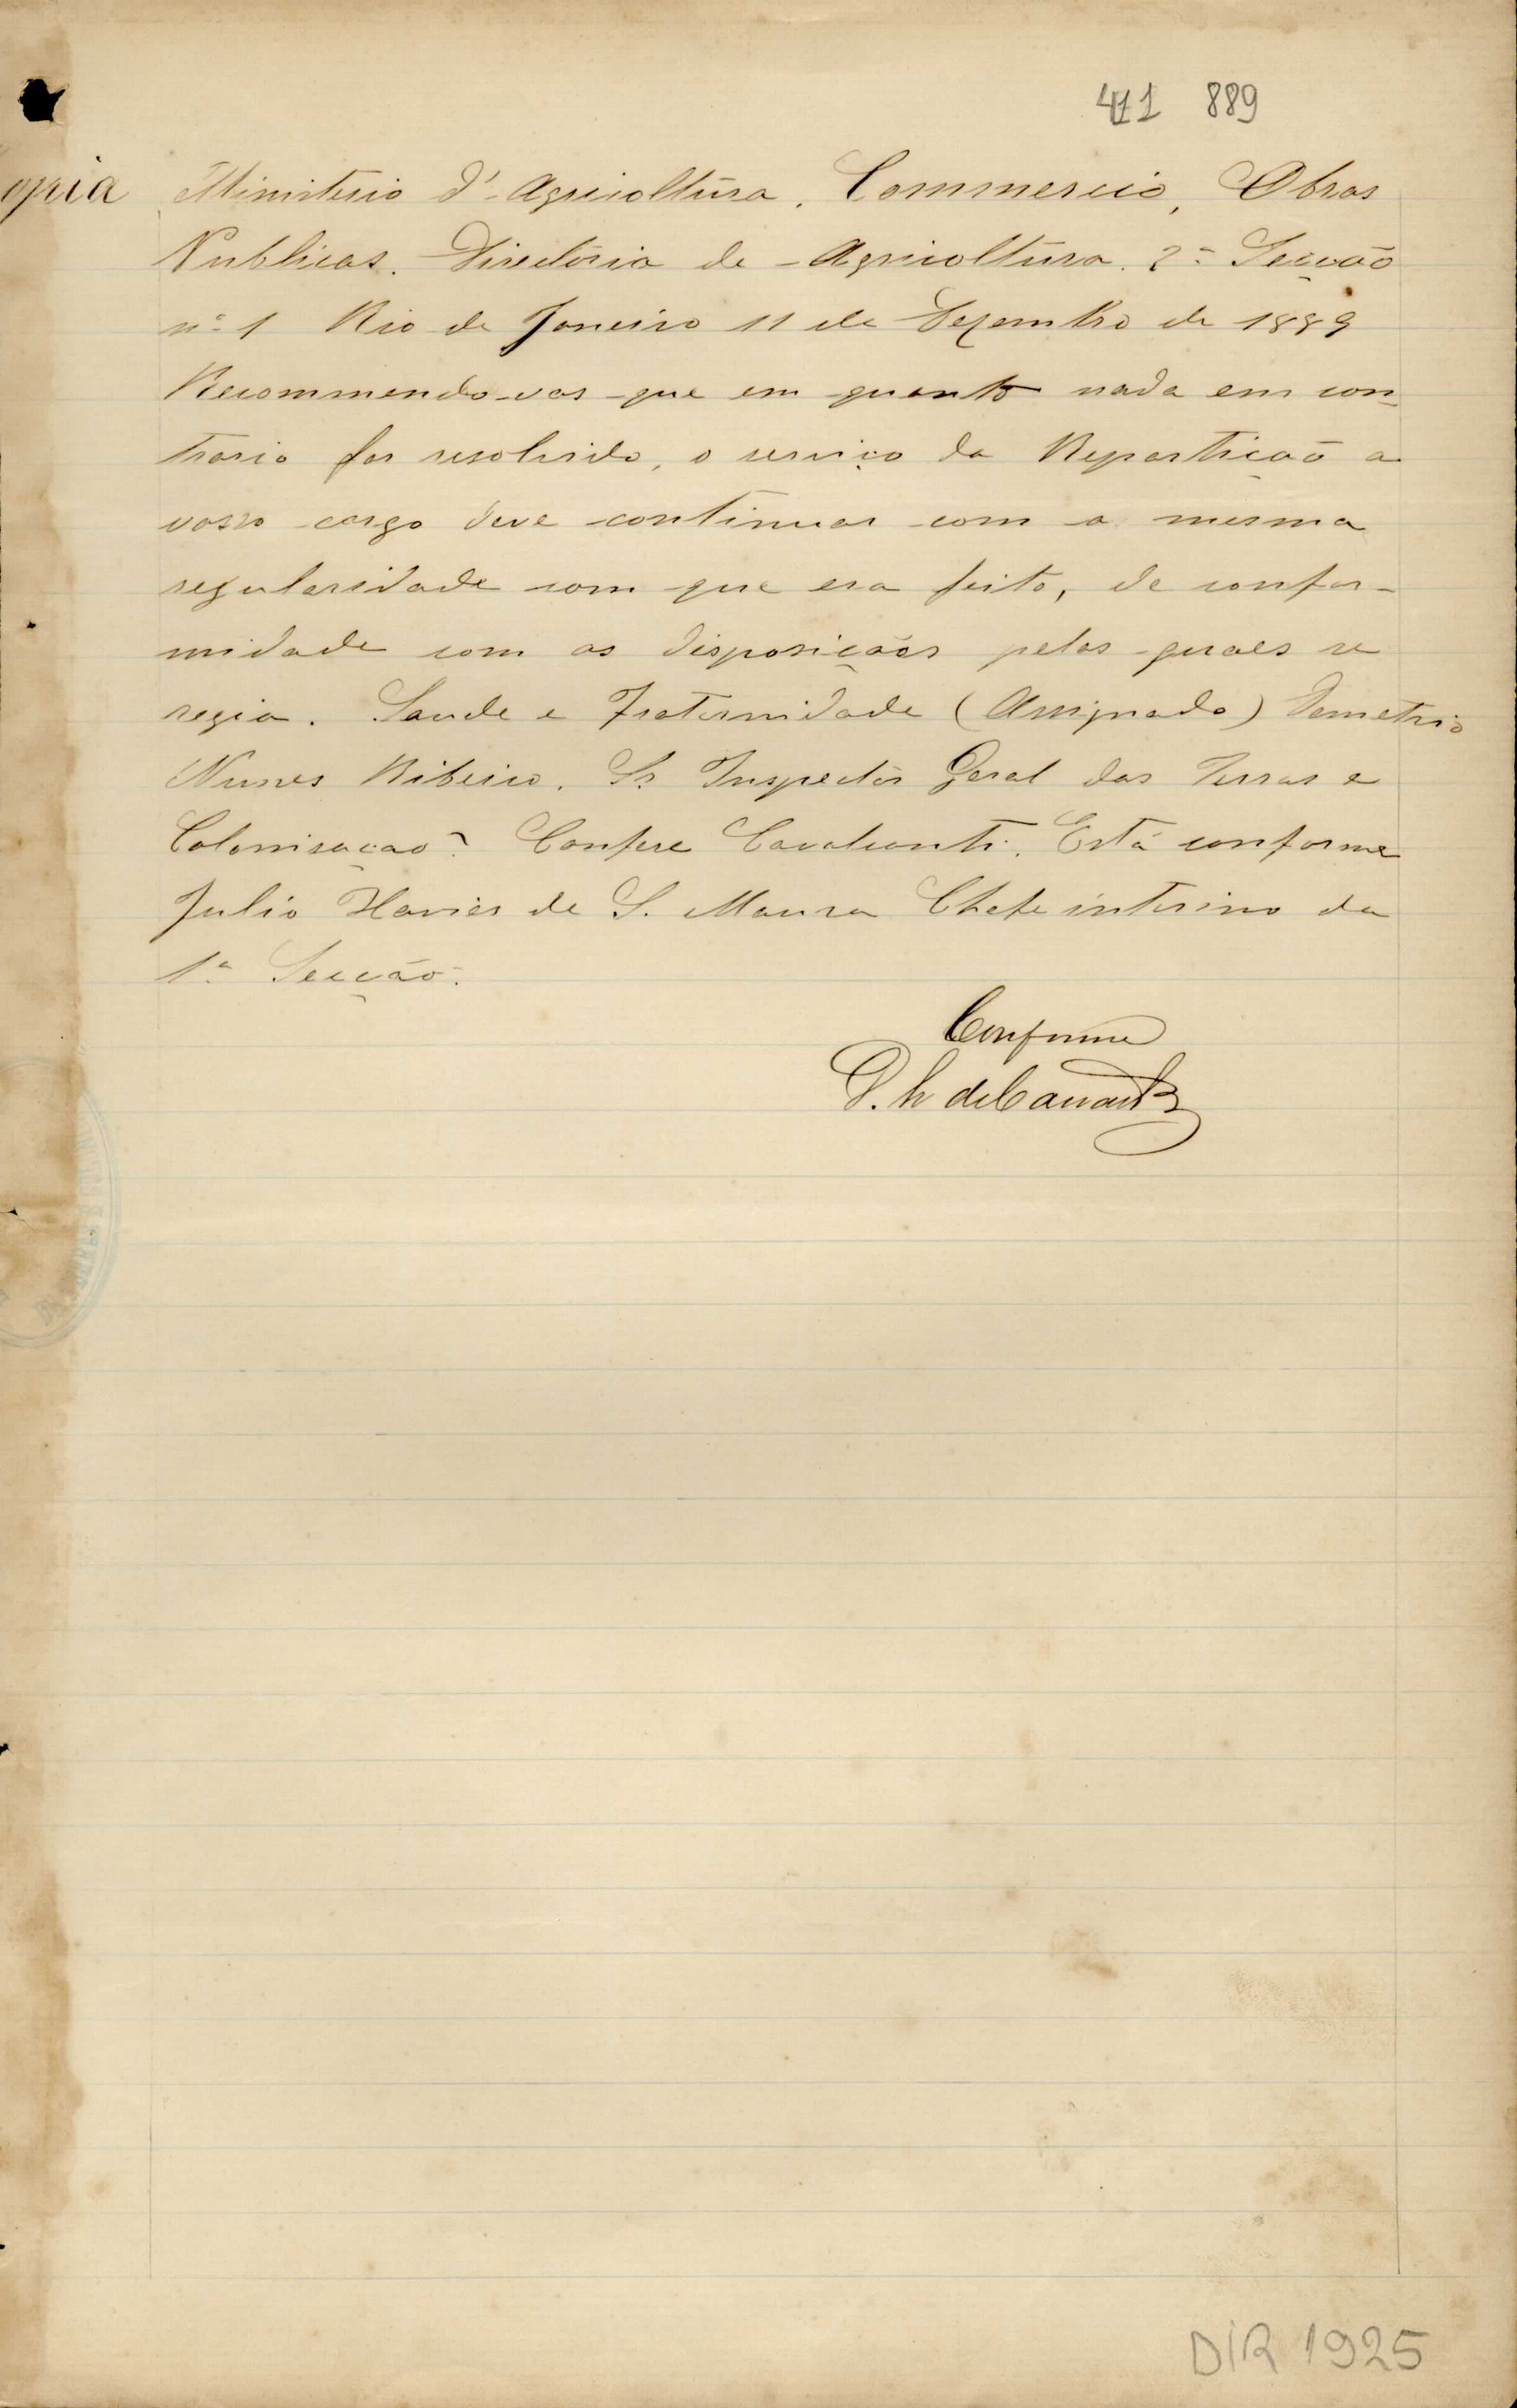 411 889
opia Ministerio d'Agricoltura, Commercio, Obras
Publicas. Directoria de Agricoltura. 2ª Secção
nº 1 Rio de Janeiro 11 de Dezembro de 1889
Recommendo-vos que em quanto nada em con-
trario for resolvido, o serviço da Repartição a
vosso cargo deve continuar com a mesma
regularidade com que era feito, de confor-
midade com as disposições pelas quaes se
regia. Saude e Fraternidade (Assignado) Demetrio
Nunes Ribeiro. Sr Inspector Geral das Terras e
Colonisação. Confere Cavalcanti. Está conforme
Julio Xavier de S. Moura Chefe interino da
1ª Secção.
Conforme
DIR 1925